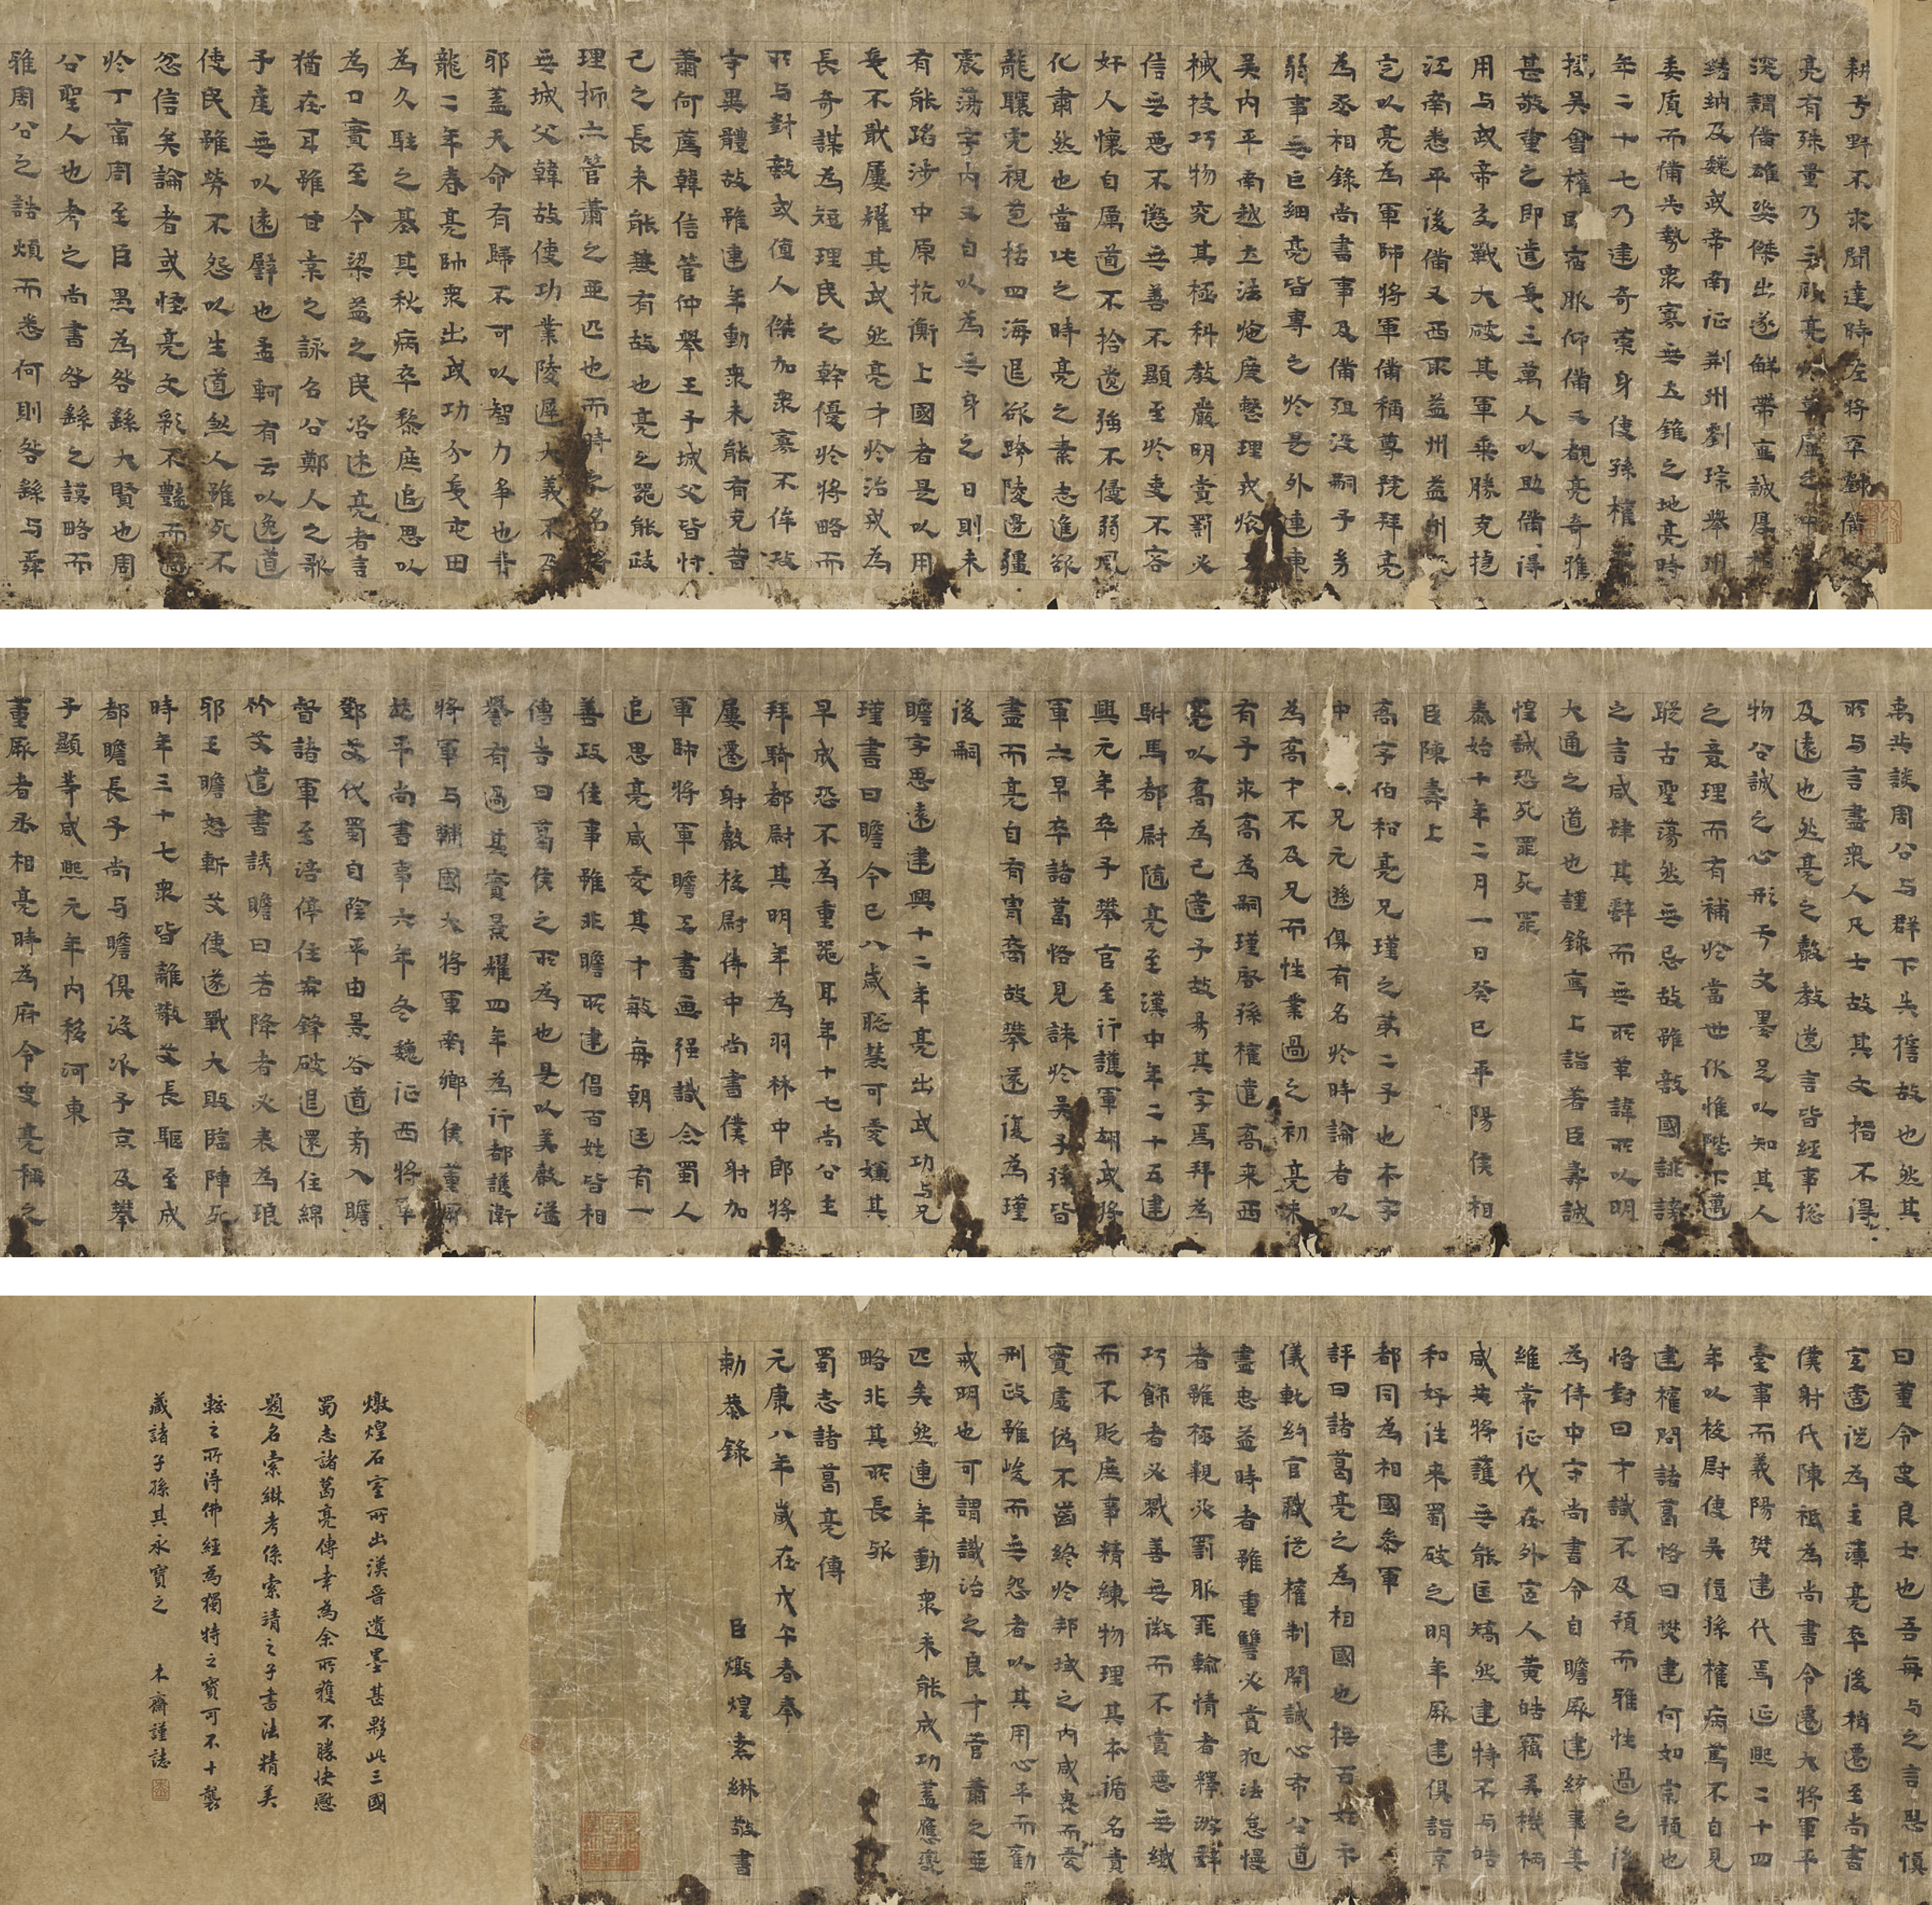 耕于野不求聞達時左將軍劉備以
亮有殊量乃三顧亮於草廬之中
深謂備雄姿傑出遂解帶寫誠厚相
結納及魏武帝南征荊州劉琮舉州
委質而備失勢衆寡無立錐之地亮時
年二十七乃建奇策身使孫權求
援吳會權既宿服仰備又覩亮奇雅
甚敬重之即遣兵三萬人以助備得
用与武帝交戰大破其軍乘勝克捷
江南悉平後備又西取益州益州既
定以亮為軍師將軍備稱尊號拜亮
為丞相錄尚書事及備殂沒嗣子幼
弱事無巨細亮皆專之於是外連東
吳內平南越立法施度整理戎旅工
械技巧物究其極科教嚴明賞罰必
信無惡不懲無善不顯至於吏不容
奸人懷自厲道不拾遺強不侵弱風
化肅然也當此之時亮之素志進欲
龍驤虎視苞括四海退欲跨陵邊疆
震蕩宇內又自以為無身之日則未
有能蹈涉中原抗衡上國者是以用
兵不戢屢耀其武然亮才於治戎為
長奇謀為短理民之幹優於將略而
所与對敵或值人傑加衆寡不侔攻
守異體故雖連年動衆未能有克昔
蕭何薦韓信管仲舉王子城父皆忖
己之長未能兼有故也亮之器能政
理抑亦管蕭之亞匹也而時之名將
無城父韓故使功業陵遲大義不及
耶蓋天命有歸不可以智力爭也青
龍二年春亮帥衆出武功分兵屯田
為久駐之基其秋病卒黎庶追思以
為口實至今梁益之民咨述亮者言
猶在耳雖甘棠之詠召公鄭人之歌
子產無以遠譬也孟軻有云以逸道
使民雖勞不怨以生道煞人雖死不
忿信矣論者或怪亮文彩不豔而過
於丁甯周至臣愚為咎繇大賢也周
公聖人也考之尚書咎繇之謨略而
雅周公之誥煩而悉何則咎繇与舜
禹共談周公与群下失誓故也然其
所与言盡衆人凡士故其文指不得
及遠也然亮之聲教遺言皆經事綜
物公誠之心形于文墨足以知其人
之意理而有補於當世伏惟陛下邁
蹤古聖蕩然無忌故雖敵國誹謗
之言咸肆其辭而無所革諱所以明
大通之道也謹錄寫上詣著臣壽誠
惶誠恐死罪死罪
泰始十年二月一日癸巳平陽侯相
臣陳壽上
喬字伯松亮兄瑾之第二子也本字
仲兄元遜俱有名於時論者以
為喬才不及兄而性業過之初亮未
有子求喬為嗣瑾啓孫權遣喬來西
亮以喬為己適子故易其字焉拜為
駙馬都尉隨亮至漢中年二十五建
興元年卒子攀官至行護軍翊武將
軍亦早卒諸葛恪見誅於吳子孫皆
盡而亮自有胄裔故攀還復為瑾
後嗣
瞻字思遠建興十二年亮出武功与兄
瑾書曰瞻今已八歲聰慧可愛嫌其
早成恐不為重器耳年十七尚公主
拜騎都尉其明年為羽林中郎將
屢遷射聲校尉侍中尚書僕射加
軍師將軍瞻工書畫强識念蜀人
追思亮咸愛其才敏每朝廷有一
善政佳事雖非瞻所建倡百姓皆相
傳告曰葛侯之所為也是以美聲溢
譽有過其實景耀四年為行都護衛
將軍与輔國大將軍南鄉侯董厥
並平尚書事六年冬魏征西將軍
鄧艾伐蜀自陰平由景谷道旁入瞻
督諸軍至涪停住前鋒破退還住綿
竹艾遣書誘瞻曰若降者必表為琅
耶王瞻怒斬艾使遂戰大敗臨陣死
時年三十七衆皆離散艾長驅至成
都瞻長子尚与瞻俱沒次子京及攀
子顯等咸熙元年內移河東
董厥者丞相亮時為府令史亮稱之
曰董令史良士也吾每与之言思慎
宜適從為主薄亮卒後稍遷至尚書
僕射代陳祗為尚書令遷大將軍平
臺事而義陽樊建代焉延熙二十四
年以校尉使吳值孫權病篤不自見
建權問諸葛恪曰樊建何如宗預也
恪對曰才識不及預而雅性過之後
為侍中守尚書令自瞻厥建統事姜
維常征伐在外宦人黃皓竊弄機柄
咸共將護無能匡矯然建特不与皓
和好往來蜀破之明年厥建俱詣京
都同為相國參軍
評曰諸葛亮之為相國也撫百姓示
儀軌約官職從權制開誠心布公道
盡忠益時者雖重讐必賞犯法怠慢
者雖極親必罰服罪輸情者釋游辭
巧飾者必戮善無微而不賞惡無纖
而不貶庶事精練物理其本循名責
實虛偽不齒終於邦域之內咸畏而愛
刑政雖峻而無怨者以其用心平而勸
戒明也可謂識治之良才管蕭之亞
匹矣然連年動衆未能成功蓋應變
略非其所長歟
蜀志諸葛亮傳
元康八年歲在戊午春奉
勅恭錄 臣燉煌索綝敬書
燉煌石室所出漢晉遺墨甚夥此三國
蜀志諸葛亮傳幸為余所獲不勝快慰
題名索綝考係索靖之子書法精美
較之所得佛經為獨特之寶可不十襲
藏諸子孫其永寶之 木齋謹誌